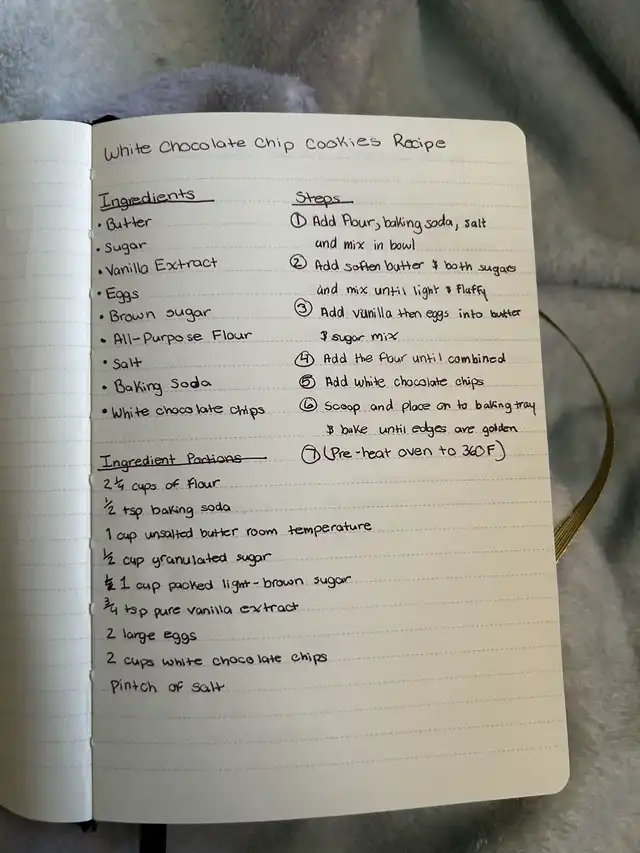 White Chocolate Chip Cookies Recipe
Ingredients
• Butter
• Sugar
• Vanilla Extract
• Eggs
• Brown sugar
• All-Purpose Flour
• Salt
• Baking Soda
• White chocolate chips
Ingredient Portions
2 1/4 cups of flour
1/2 tsp baking soda
1 cup unsalted butter room temperature
1/2 cup granulated sugar
1 cup packed light-brown sugar
3/4 tsp pure vanilla extract
2 large eggs
2 cups white chocolate chips
Pintch of salt
Steps
① Add flour, baking soda, salt
and mix in bowl
② Add soften butter & both sugars
and mix until light & fluffy
③ Add vanilla then eggs into butter
& sugar mix
④ Add the flour until combined
⑤ Add white chocolate chips
⑥ Scoop and place on to baking tray
& bake until edges are golden
⑦ (Pre-heat oven to 360F)